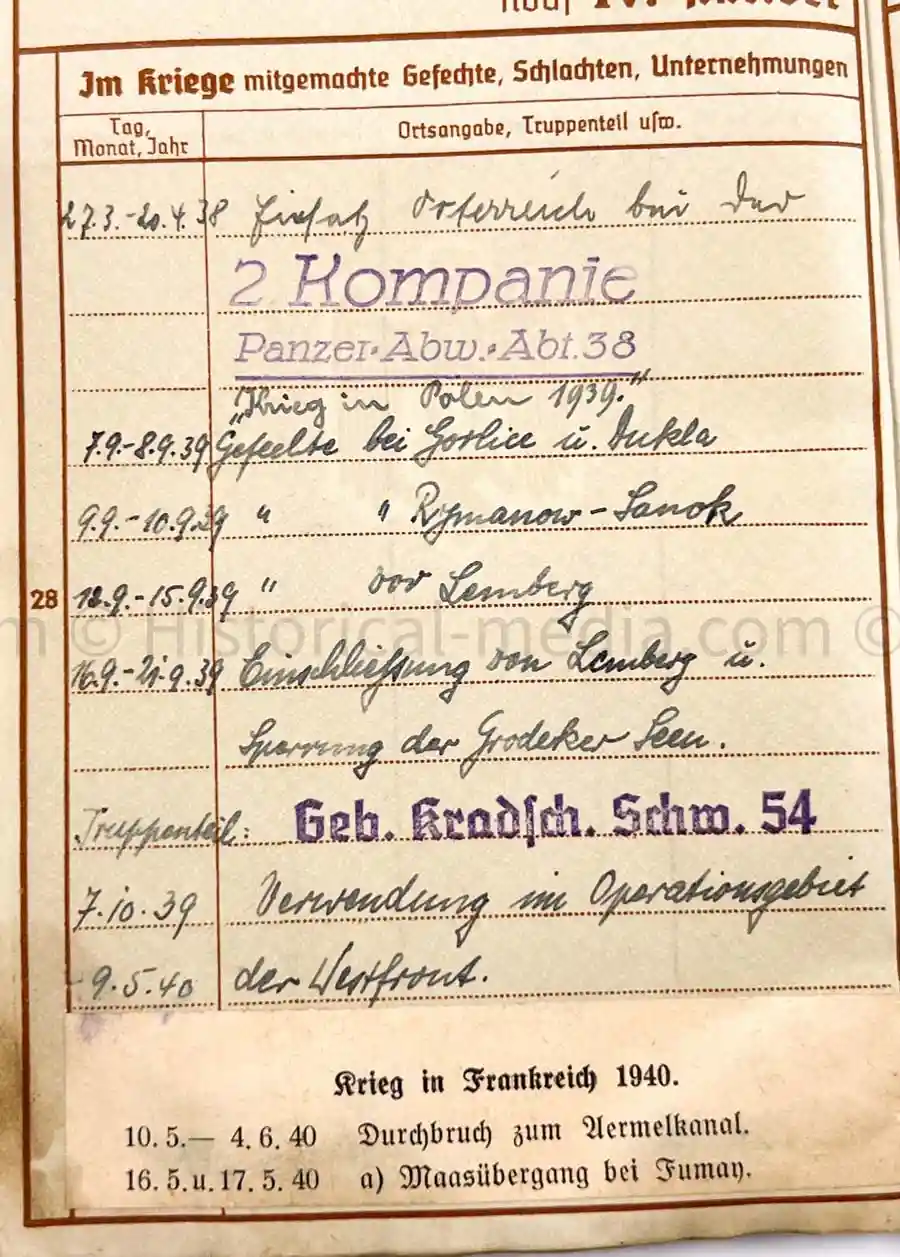 Im Kriege mitgemachte Gefechte, Schlachten, Unternehmungen
Tag, Monat, Jahr
Ortsangabe, Truppenteil usw.
27.3.-20.4.38 Einsatz Österreich bei der
2 Kompanie
Panzer-Abw.-Abt.38
"Krieg in Polen 1939."
7.9.-8.9.39 Gefechte bei Gorlice u. Dukla
9.9.-10.9.39 " " Rymanow-Sanok
28
12.9.-15.9.39 " vor Lemberg
m © Historical-media.com ©
16.9.-21.9.39 Einschließung von Lemberg u.
Sperrung der Grodeker Seen.
Truppenteil: Geb. Kradsch. Schw. 54
7.10.39 Verwendung im Operationsgebiet
- 9.5.40 der Westfront.
Krieg in Frankreich 1940.
10. 5.— 4. 6. 40 Durchbruch zum Aermelkanal.
16. 5. u. 17. 5. 40 a) Maasübergang bei Fumay.